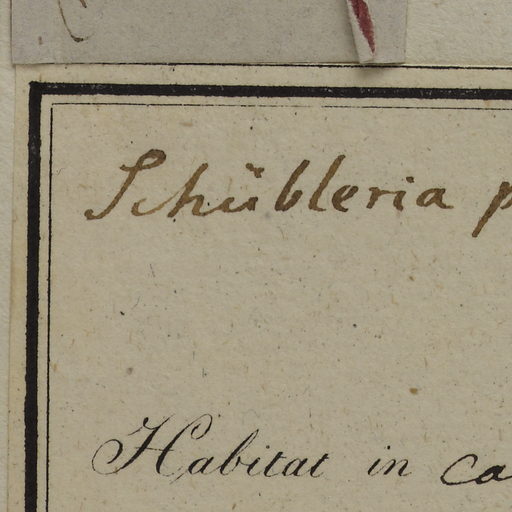 Schübleria p
Habitat in ca